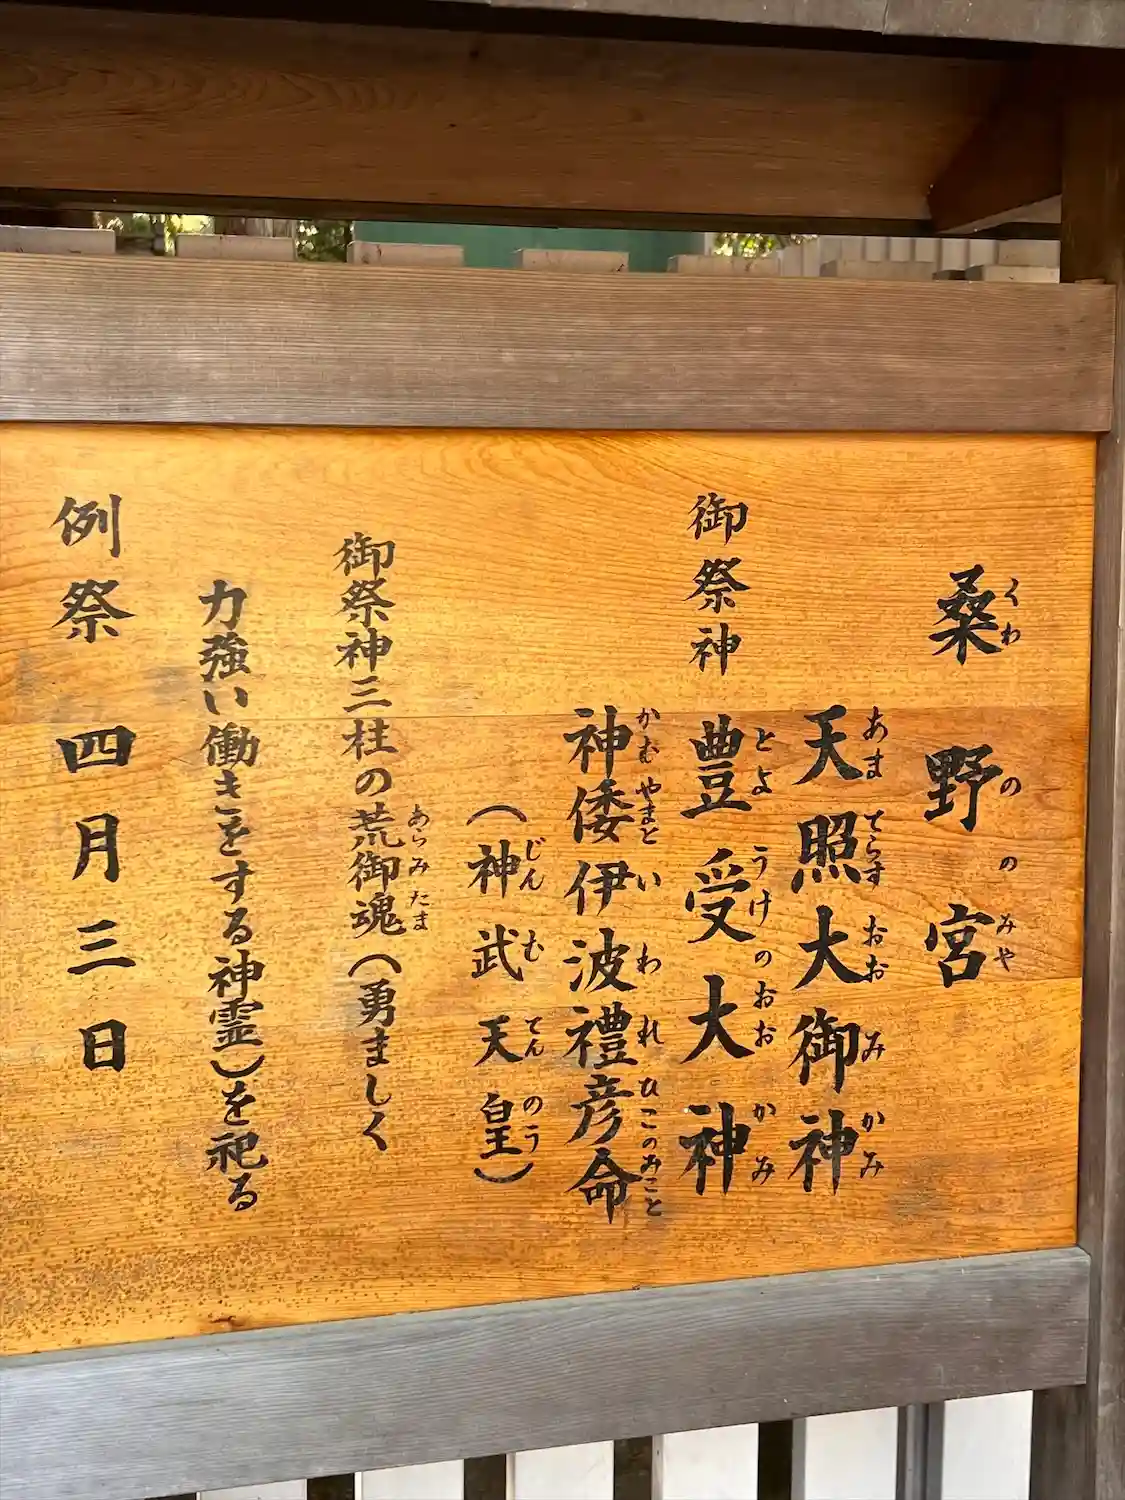 桑野宮
くわ の の みや
天照大御神
あま てらす おお み かみ
御祭神 豊受大神
とよ うけ の おお かみ
神倭伊波禮彦命
かむ やまと い わ れ ひこ の みこと
（神武天皇）
じん む てん のう
御祭神三柱の荒御魂（勇ましく
あらみたま
力強い働きをする神霊）を祀る
例祭 四月三日